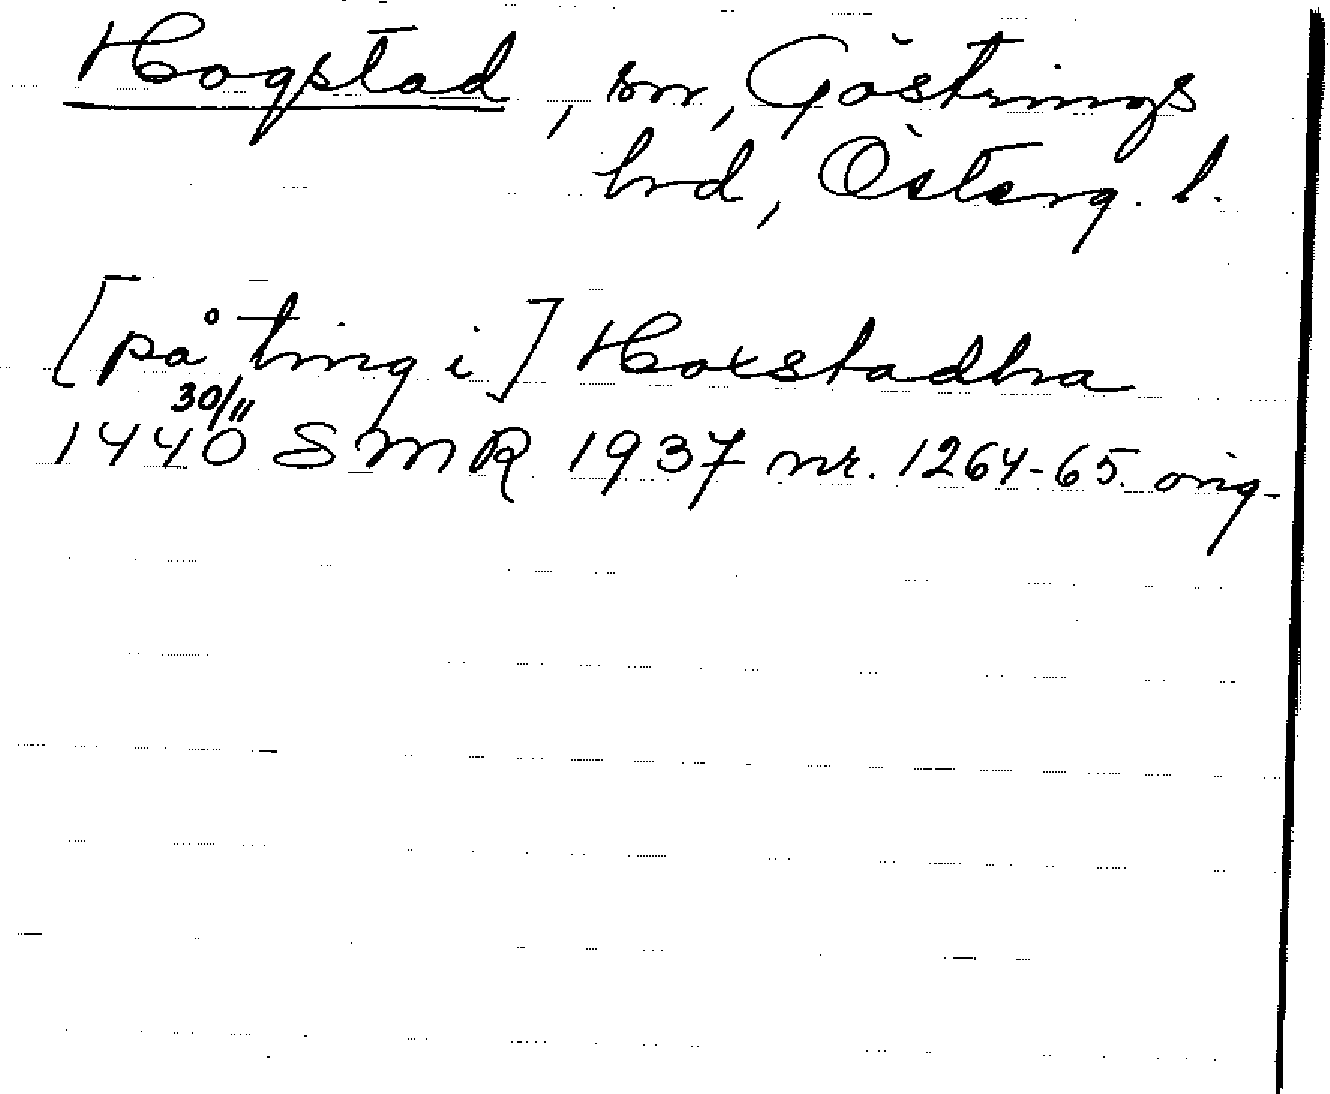 Hogstad, sn, Göstrings
hrd, Österg. l.
[på ting i] Hoxstadha
30/11
1440 SMR 1937 nr. 1264-65 orig.